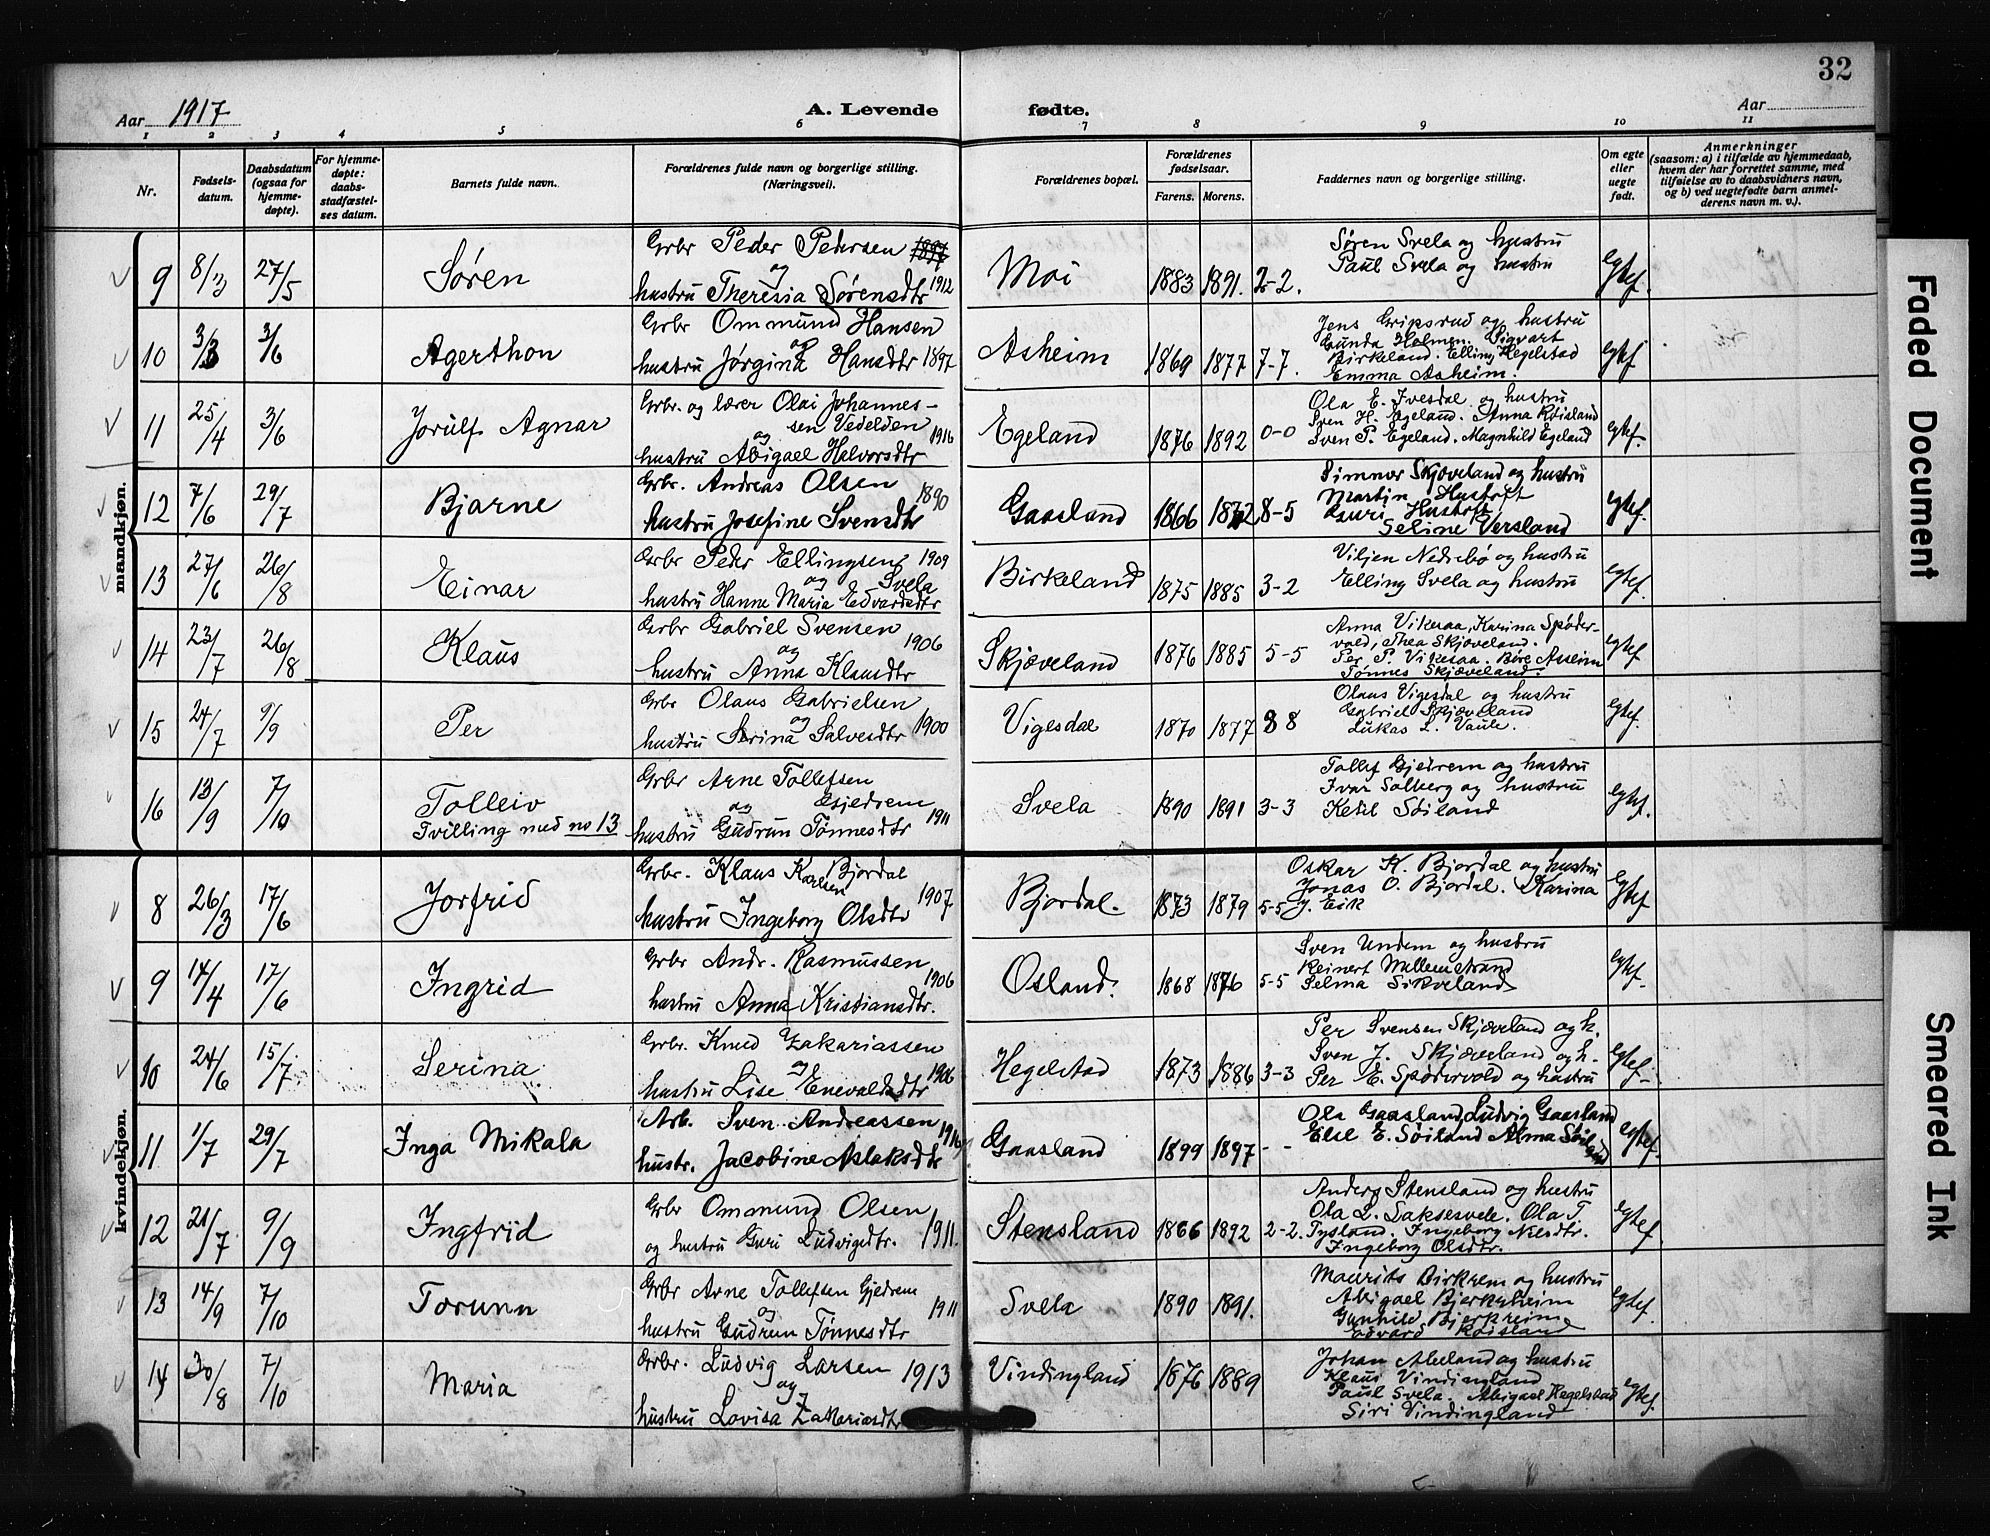 32
Aar 1917
A. Levende fødte.
Aar
1 2 3 4 5 6 7 8 9 10 11
Nr.
Fødsels-
datum.
Daabsdatum
(ogsaa for
hjemme-
døpte).
For hjemme-
døpte:
daabs-
stadfæstel-
ses datum.
Barnets fulde navn.
Forældrenes fulde navn og borgerlige stilling.
(Næringsvei).
Forældrenes bopæl.
Forældrenes
fødselsaar.
Farens. Morens.
Faddernes navn og borgerlige stilling.
Om egte
eller
uegte
født.
Anmerkninger
(saasom: a) i tilfælde av hjemmedaab,
hvem der har forrettet samme, med
tilføielse av to daabsvidners navn,
og b) ved uegtefødte barn anmel-
derens navn m. v.).
mandkjøn.
9 8/3 27/5 Søren
Grbr Peder Pedersen
og
hustru Theresia Sørensdtr 1912
Moi 1883 1891. 2-2.
Søren Svela og hustru
Paul Svela og hustru
egtef.
10 3/3 3/6 Agerthon
Grbr Ommund Hansen
og
hustru Jørgina Hansdtr 1897
Asheim 1869 1877 7-7.
Jens Griksrud og hustru
Gunda Holmen. Sigvart
Birkeland. Elling Hegelstad
Emma Asheim.
egtef
11 25/4 3/6 Jorulf Agnar
Grbr. og lærer Olai Johannes-
sen Vedelden
og 1916
hustru Abigael Halvorsdtr
Egeland 1876 1892 0-0
Ola E. Ivesdal og hustru
Sven H. Egeland. Anna Røisland
Sven P. Egeland. Magnhild Egeland
egtef.
12 7/6 29/7 Bjarne
Grbr. Andreas Olsen 1890
hustru Josefine Svensdtr
Gaasland 1866 1872 8-5
Simmer Skjæveland og hustru
Martin Hustoft
Guri Hustoft
Seline Versland
egtef.
13 27/6 26/8 Einar
Grbr Peder Ellingsen 1909
og Svela
hustru Hanne Maria Edvardsdtr
Birkeland 1875 1885 3-2
Viljen Nedrebø og hustru
Elling Svela og hustru
egtef.
14 23/7 26/8 Klaus
Grbr Gabriel Svensen 1906
og
hustru Anna Klausdtr
Skjæveland 1876 1885 5-5
Anna Vikesaa, Karina Spøder-
vold, Thea Skjæveland.
Per P. Vikesaa. Børe Asseim
Tønnes Skjæveland.
egtef
15 24/7 9/9 Per
Grbr Olaus Gabrielsen
og
hustru Serina Salvesdtr 1900
Vigesdal 1870 1877 8 8
Olaus Vigesdal og hustru
Gabriel Skjæveland
Lukas L. Vaule.
egtef.
16 13/9 7/10 Tolleiv
Tvilling med no 13
Grbr Arne Tollefsen
og Gjedrem
hustru Gudrun Tønnesdtr 1911
Svela 1890 1891 3-3
Tollef Gjedrem og hustru
Ivar Solberg og hustru
Ketil Søiland
egtef.
kvindekjøn.
8 26/3 17/6 Jorfrid
Grbr. Klaus Karlsen Bjordal
hustru Ingeborg Olsdtr 1907
Bjordal. 1873 1879 5-5
Oskar K. Bjordal og hustru
Jonas O. Bjordal. Karina
J. Eik
egtef
9 14/4 17/6 Ingrid
Grbr Andr. Rasmussen
hustru Anna Kristiansdtr. 1906
Osland. 1868 1876 5-5
Sven Undem og hustru
Reinert Mellemstrand
Selma Sikveland
egtef.
10 24/6 15/7 Serina
Grbr. Knud Zakariassen
og 1906
hustru Lise Enevaldsdtr
Hegelstad 1873 1886 3-3
Per Svensen Skjæveland og h.
Sven J. Skjæveland og h.
Per E. Spødervold og hustru
egtef.
11 1/7 29/7 Inga Mikala
Arb. Sven Andreassen 1916
hustr. Jacobine Aslaksdtr
Gaasland 1899 1897 - -
Ole Gaasland, Ludvig Gaasland
Else E. Søiland Alma Søiland
egtef.
12 21/7 9/9 Ingfrid
Grbr Ommund Olsen
og hustru Guri Ludvigsdtr. 1911.
Stensland 1866 1892 2-2.
Anders Stensland og hustru
Ola L. Laksesvele. Ola T.
Tysland. Ingeborg Nilsdtr.
Ingeborg Olsdtr.
egtef.
13 14/9 7/10 Torunn
Grbr Arne Tollefsen Gjedrem
og 1911
hustru Gudrun Tønnesdtr
Svela 1890 1891.
Maurits Birkrem og hustru
Abigael Bjerkreim
Gunhild Bjerkreim
Edvard Røisland
egtef.
14 30/8 7/10 Maria
Grbr. Ludvig Larsen 1913
og
hustru Lovisa Zakariasdtr
Vindingland 1876 1889
Johan Aheland og hustru
Klaus Vindingland
Paul Svela. Abigael Hegelstad
Siri Vindingland
egtef.
Faded Document
Smeared Ink